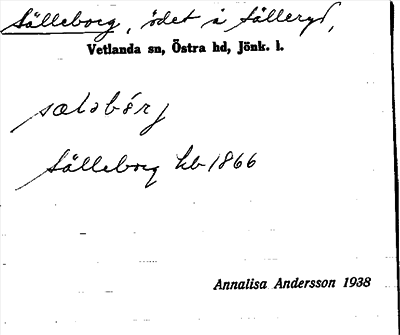 Sälleborg, ödet å Sälleryd,
Vetlanda sn, Östra hd, Jönk. l.
sæləbórj
Sälleborg kb 1866
Annalisa Andersson 1938